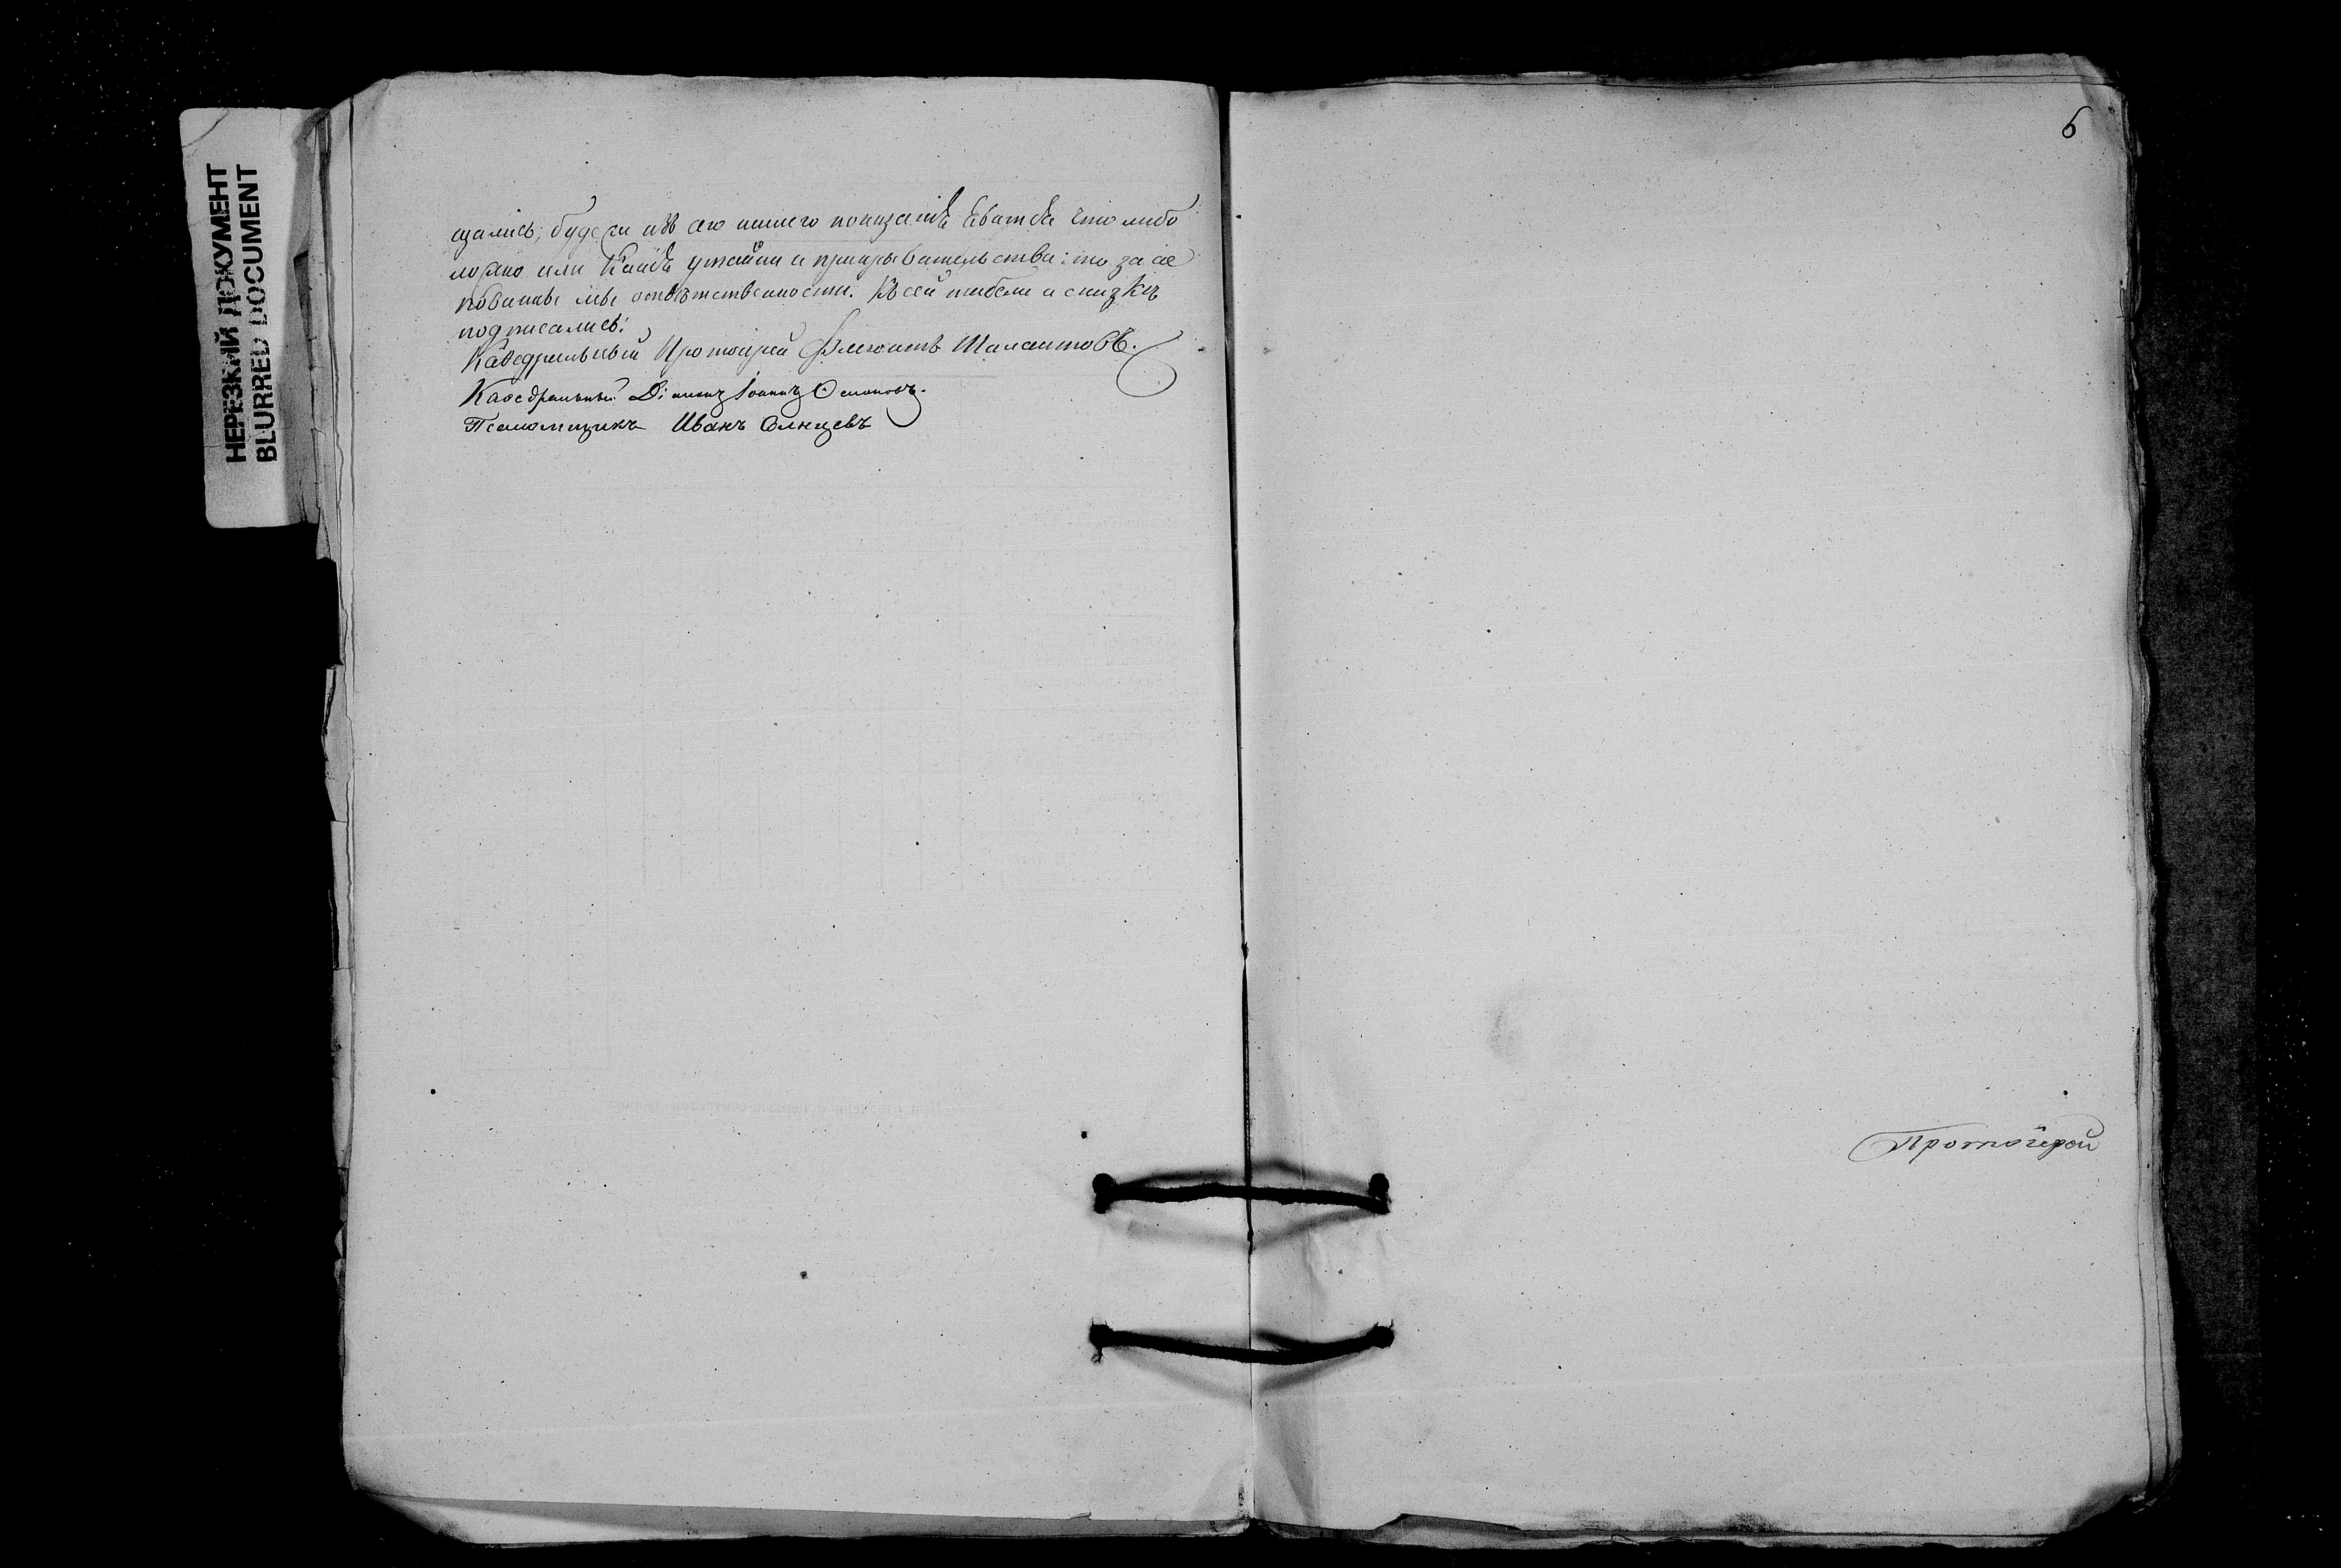 НЕРЕЗКИЙ ДОКУМЕНТ
BLURRED DOCUMENT
щались; будеже изъ сего нашего показанiя явится что либо
ложно или какая утайка и прикрывательства: то за сiе
повинны мы ответственности. Къ сей табели и сказкѣ
подписались:
Каѳедральный Протоiерей Шалантовъ.
Каѳедральный Дiаконъ Iоаннъ
Псаломщикъ Иванъ Солнцевъ
6
Протоiерей